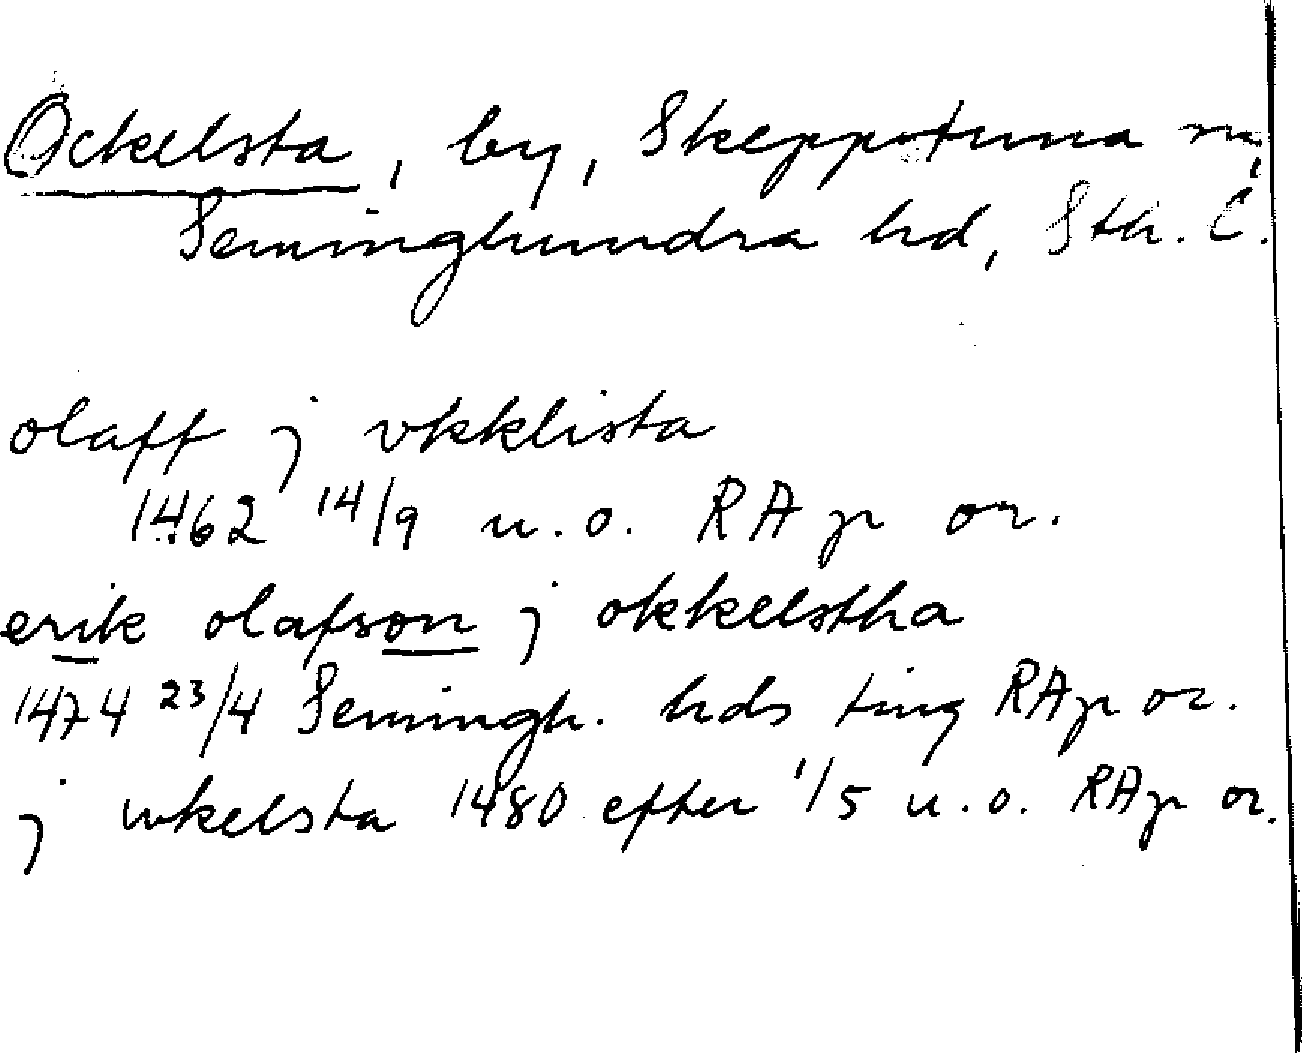 Ockelsta, by, Skepptuna sn,
Seminghundra hd, Sth. l.
olaff j vkklista
1462 14/9 u.o. RAp or.
erik olafson j okkelstha
1474 23/4 Semingh. hds ting RAp or.
j wkelsta 1480 efter 1/5 u.o. RAp or.